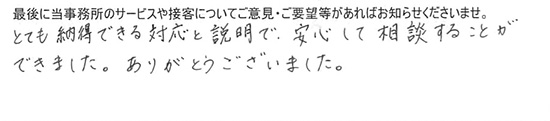 最後に当事務所のサービスや接客についてご意見・ご要望等があればお知らせくださいませ。
とても納得できる対応と説明で、安心して相談することが
できました。ありがとうございました。